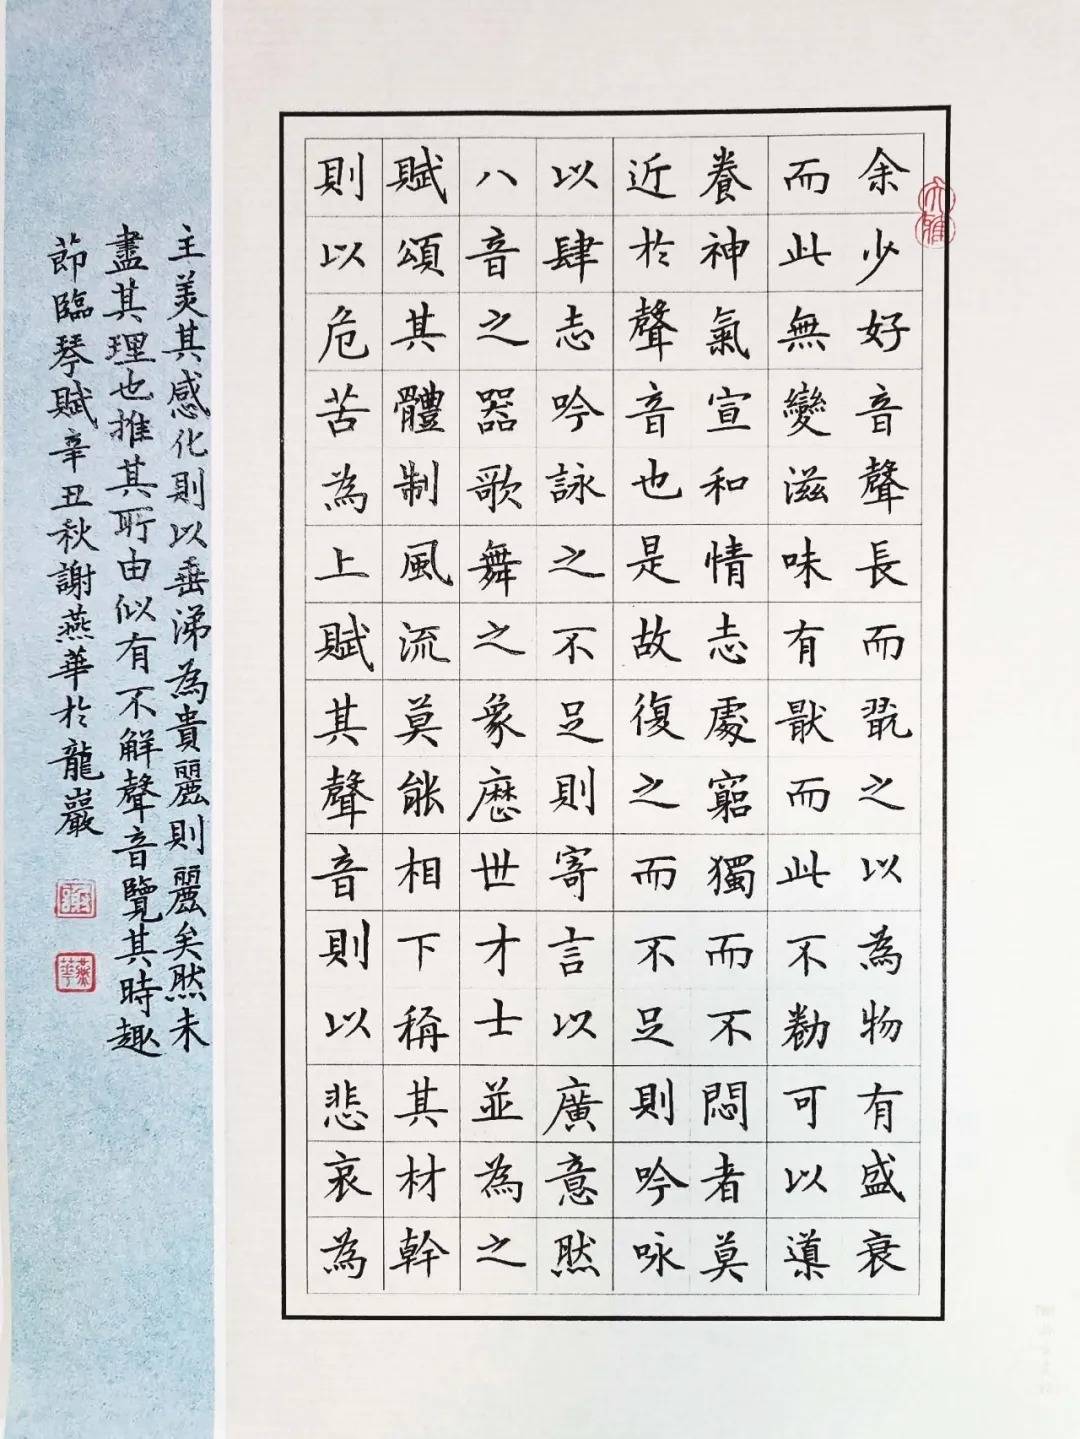 余少好音聲長而翫之以為物有盛衰
而此無變滋味有猒而此不勌可以導
養神氣宣和情志處窮獨而不悶者莫
近於聲音也是故復之而不足則吟咏
以肆志吟詠之不足則寄言以廣意然
八音之器歌舞之象歷世才士並為之
賦頌其體制風流莫能相下稱其材幹
則以危苦為上賦其聲音則以悲哀為
主美其感化則以垂涕為貴麗則麗矣然未
盡其理也推其所由似有不解聲音覽其時趣
節臨琴賦辛丑秋謝燕華於龍巖
謝
燕華
大雅